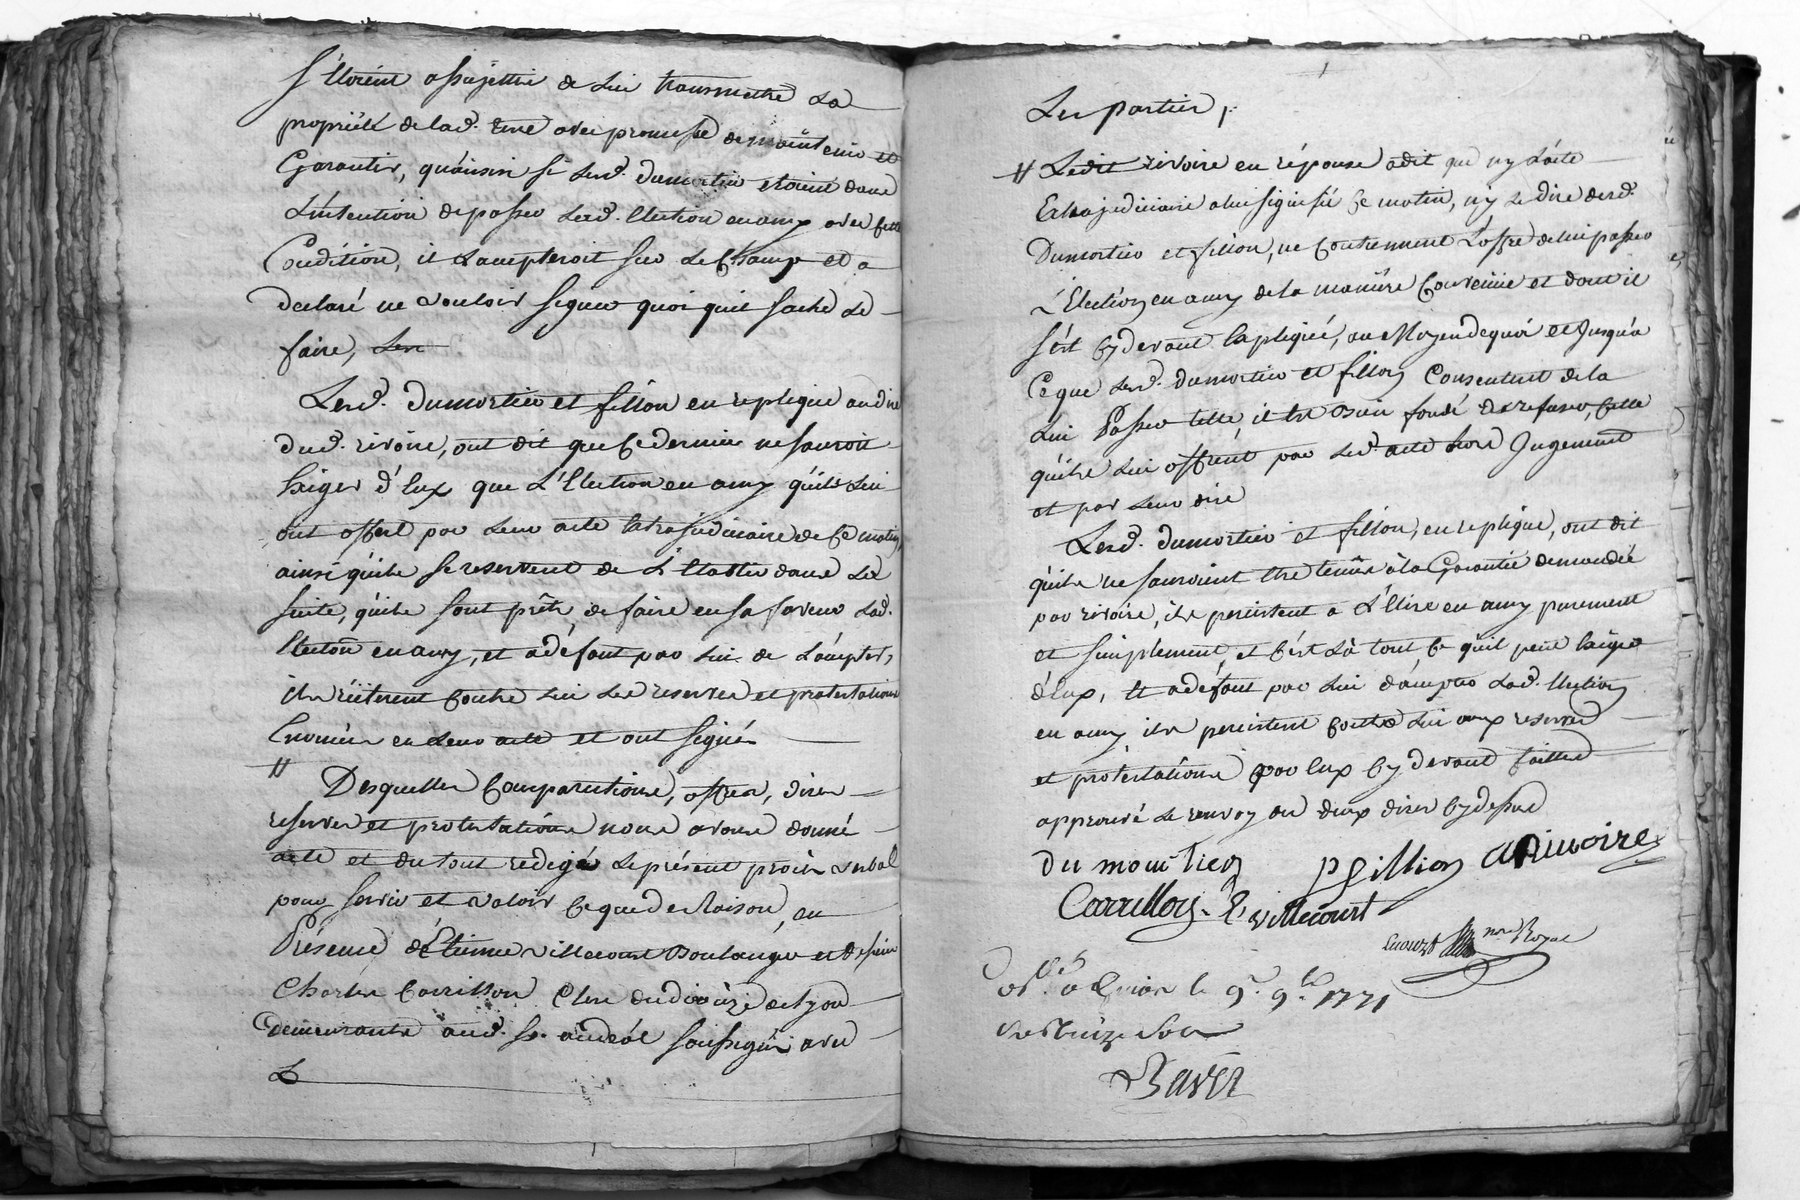 s'étoient assujettis de lui transmettre la
propriété de lad. terre avec promesse de maintenir et
Garantir, quainsi si lesd. dumortier etoient dans
L'intention de passer lesd. Election en amy avec cette
Condition, il L'accepteroit sur Le Champ et a
declaré ne vouloir signer quoi quil sache Le
faire,
Lesd. dumortier et fillon en replique au dire
dud. rivoire, ont dit que ce dernier ne sauroit
Exiger d'Eux que L'Election en amy quils Lui
ont offert par Leur acte Extrajudiciaire de ce matin,
ainsi quils se reservent de L'Etablir dans La
suite, quils sont prêts de faire en sa faveur Lad.
Election en amy, et adéfaut par Lui de L'accepter,
ils réiterent contre Lui Les reserves et protestations
Enoncées en Leur acte et ont signés
// Desquelles Comparutions, offres, dires
reserves et protestations nous avons donné
acte et du tout redigé Le présent procès verbal
pour servir et valoir ce que de Raison, en
Présence d'Etienne villecourt Boulanger et de sieur
Charles Carrillon Clerc du diocèze de Lyon
demeurants aud. st. andéol soussignés avec
L
Les parties ;.
// Ledit rivoire en réponse adit que ny L'acte
Extrajudiciaire a lui signifié ce matin, ny Le dire desd.
Dumortier et fillon, ne contiennent L'offre de lui passer
L'Election en amy de la maniére convenüe et dont il
s'est cy devant Expliqué, au Moyen de quoi et Jusqua
Ce que Lesd. dumortier et fillon Consentent de la
Lui Passer telle, il est bien fondé de refuser, Celle
quils Lui offrent par Led. acte hors Jugement
et par Leur dire
Lesd. dumortier et fillon, en replique, ont dit
quils ne sauroient Etre tenus à la Garantie demandée
par rivoire, ils persistent a L'Elire en amy purement
et simplement, et c'est Là tout ce quil peut Exiger
d'Eux, Et adéfaut par Lui d'accepter Lad. Election
en amy ils persistent contre Lui aux reserves
et protestations par Eux cy devant faittes
approuvé Le renvoy au deux dires cy dessus
du mourtier pfillion a Rivoire
Carrillon E villecourt
nre Royal
le 9e. 9bre 1771
treize sols